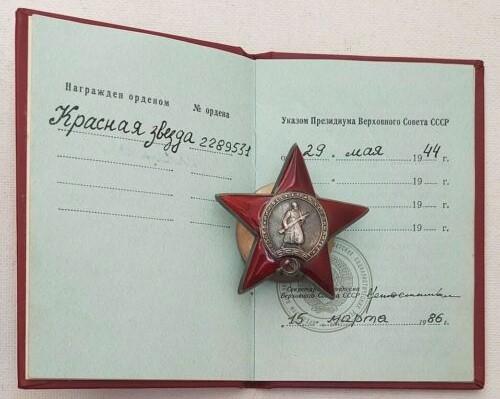 Награжден орденом № ордена
Красная звезда 2289531
Указом Президиума Верховного Совета СССР
29. мая 1944 г.
19 г.
19 г.
19 г.
Секретарь
Верховного Совета СССР
15 марта 1986 г.